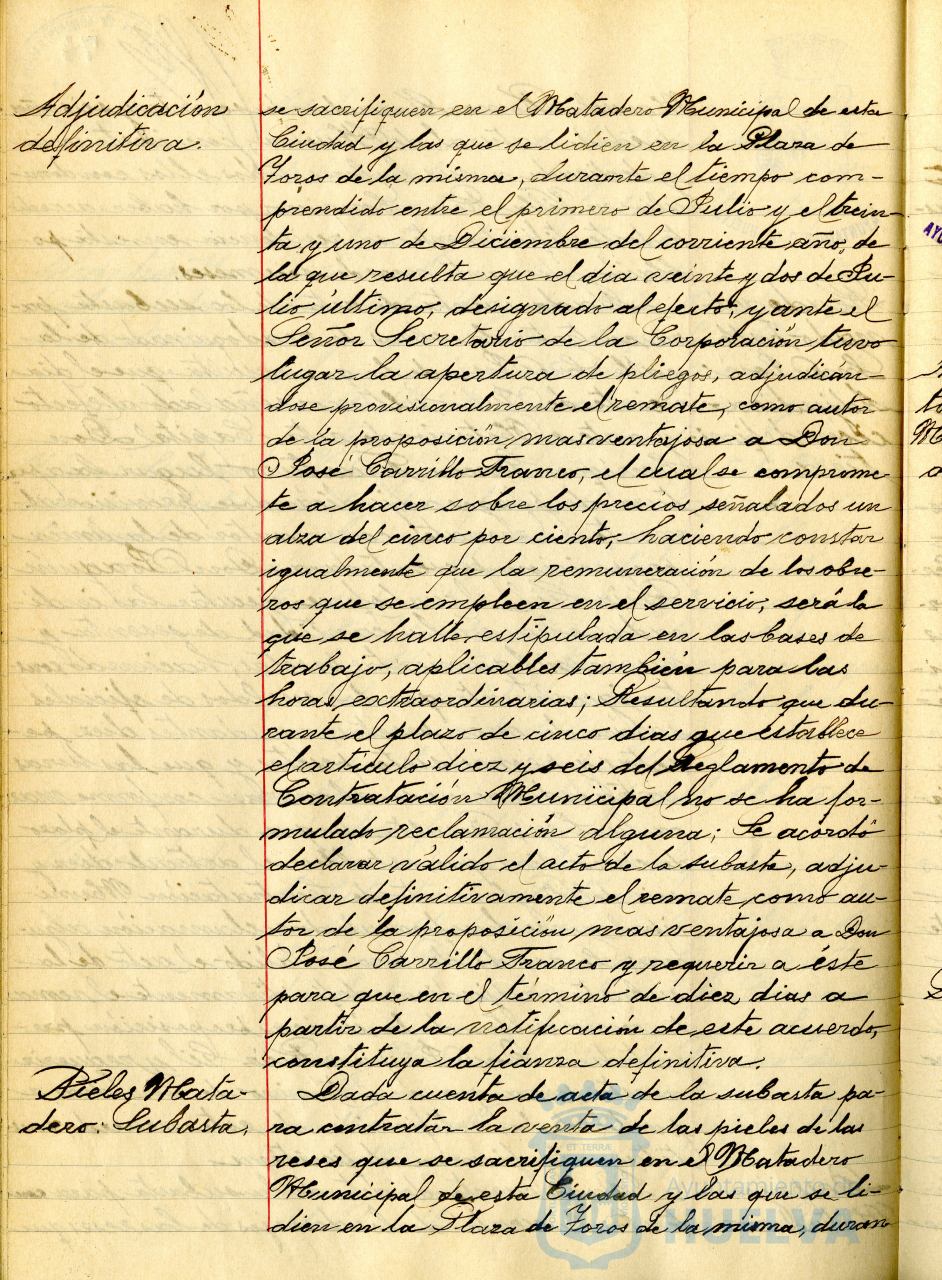 Adjudicación
definitiva.
se sacrifiquen en el Matadero Municipal de esta
Ciudad y las que se lidien en la Plaza de
Toros de la misma, durante el tiempo com-
prendido entre el primero de Julio y el trein-
ta y uno de Diciembre del corriente año, de
la que resulta que el dia veinte y dos de Ju-
lio último, designado al efecto, y ante el
Señor Secretario de la Corporación tuvo
lugar la apertura de pliegos, adjudicán-
dose provisionalmente el remate, como autor
de la proposición mas ventajosa a Don
José Carrillo Franco, el cual se comprome-
te a hacer sobre los precios señalados un
alza del cinco por ciento, haciendo constar
igualmente que la remuneración de los obre-
ros que se empleen en el servicio, será la
que se halle estipulada en las bases de
trabajo, aplicables también para las
horas extraordinarias; Resultando que du-
rante el plazo de cinco dias que establece
el artículo diez y seis del Reglamento de
Contratación Municipal no se ha for-
mulado reclamación alguna; Se acordó
declarar válido el acto de la subasta, adju-
dicar definitivamente el remate como au-
tor de la proposición mas ventajosa a Don
José Carrillo Franco y requerir a éste
para que en el término de diez dias a
partir de la notificación de este acuerdo,
constituya la fianza definitiva.
Pieles Mata-
dero: Subasta.
Dada cuenta de acta de la subasta pa-
ra contratar la venta de las pieles de las
reses que se sacrifiquen en el Matadero
Municipal de esta Ciudad y las que se li-
dien en la Plaza de Toros de la misma, duran
Ayuntamiento de
HUELVA